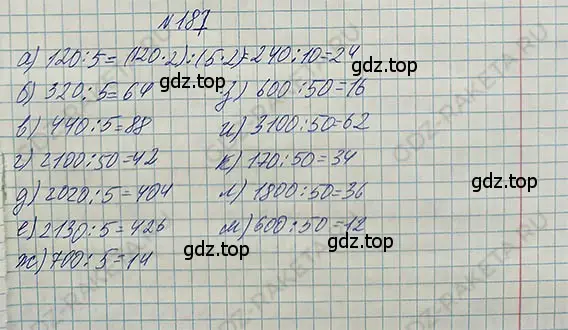 №187
а) 120:5=(120·2):(5·2)=240:10=24
б) 320:5=64
з) 600:50=16
в) 440:5=88
и) 3100:50=62
г) 2100:50=42
к) 170:50=34
д) 2020:5=404
л) 1800:50=36
е) 2130:5=426
м) 600:50=12
ж) 700:5=14
gdz.top
gdz.top
gdz.top
gdz.top
gdz.top
gdz.top
GDZ-RAKETA.RU
GDZ-RAKETA.RU
GDZ-RAKETA.RU